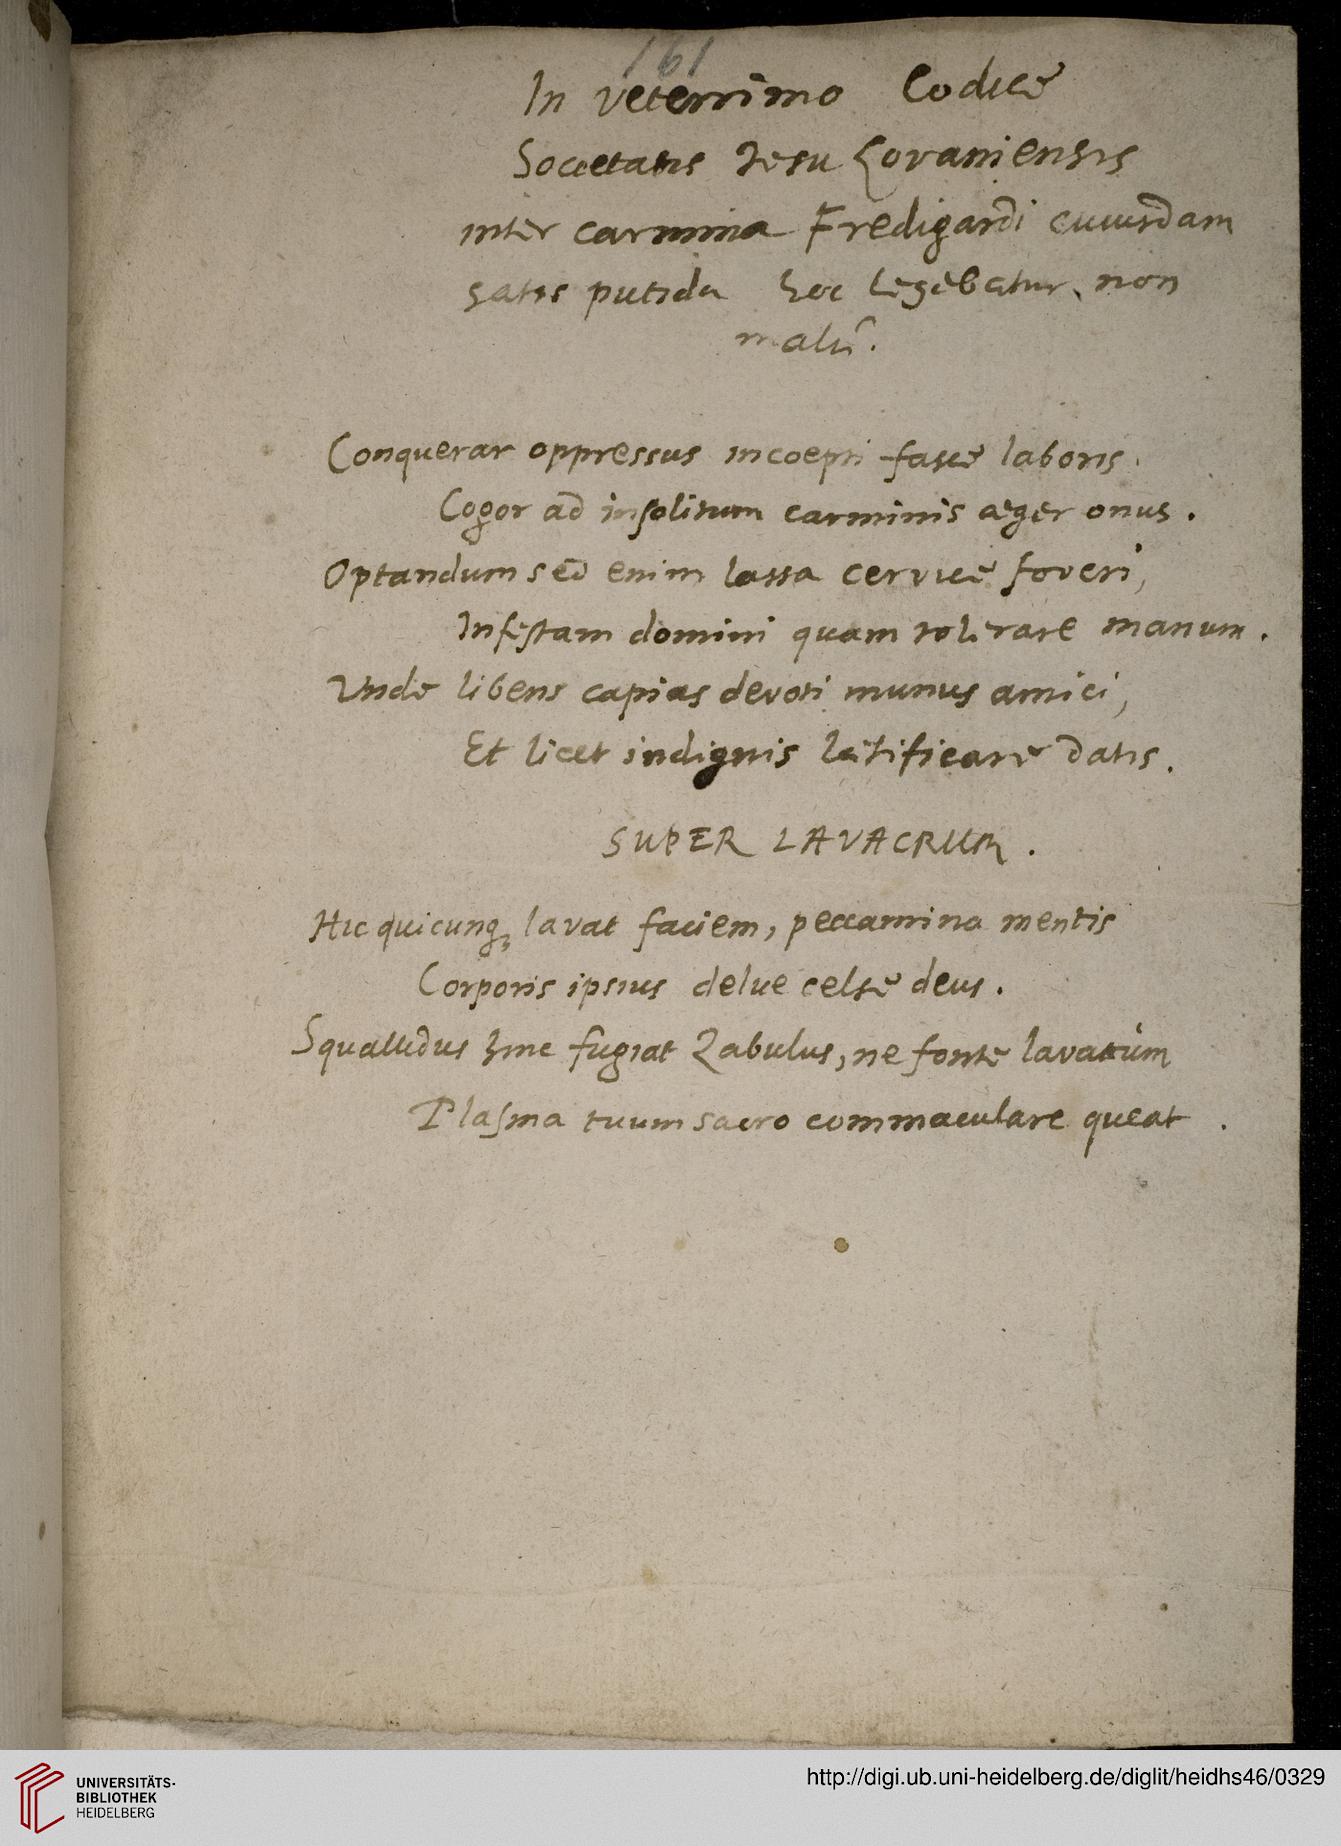 161
In veterrimo Codice
Societatis Jesu Lovaniensis
inter carmina Fredigardi cuiusdam
satis putida hoc legebatur, non
malū.
Conquerar oppressus incoepti fasce laboris.
Cogor ad insolitum carminis æger onus.
Optandum sed enim lassa cervice foveri,
Infestam domini quam tolerare manum.
Unde libens capias devoti munus amici,
Et licet indignis lætificare datis.
SUPER LAVACRUM.
Hic quicunq; lavat faciem, peccamina mentis
Corporis ipsius delue celse deus.
Squallidus hinc fugiat Zabulus, ne fonte lavatum
Plasma tuum sacro commaculare queat.
UNIVERSITÄTS-
BIBLIOTHEK
HEIDELBERG
http://digi.ub.uni-heidelberg.de/diglit/heidhs46/0329